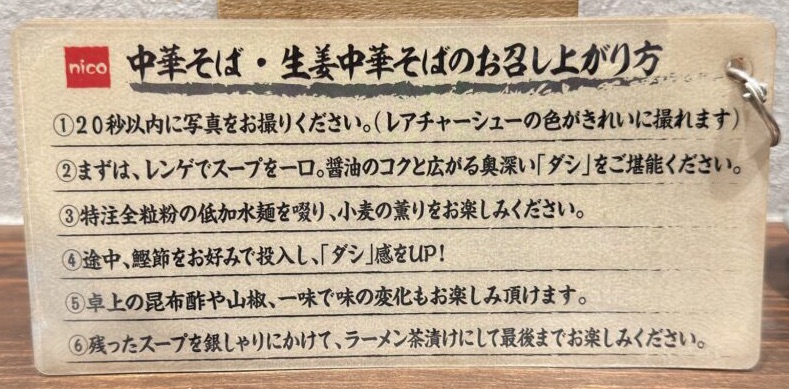 nico
中華そば・生姜中華そばのお召し上がり方
①20秒以内に写真をお撮りください。(レアチャーシューの色がきれいに撮れます)
②まずは、レンゲでスープを一口。醤油のコクと広がる奥深い「ダシ」をご堪能ください。
③特注全粒粉の低加水麺を啜り、小麦の薫りをお楽しみください。
④途中、鰹節をお好みで投入し、「ダシ」感をUP!
⑤卓上の昆布酢や山椒、一味で味の変化もお楽しみ頂けます。
⑥残ったスープを銀しゃりにかけて、ラーメン茶漬けにして最後までお楽しみください。